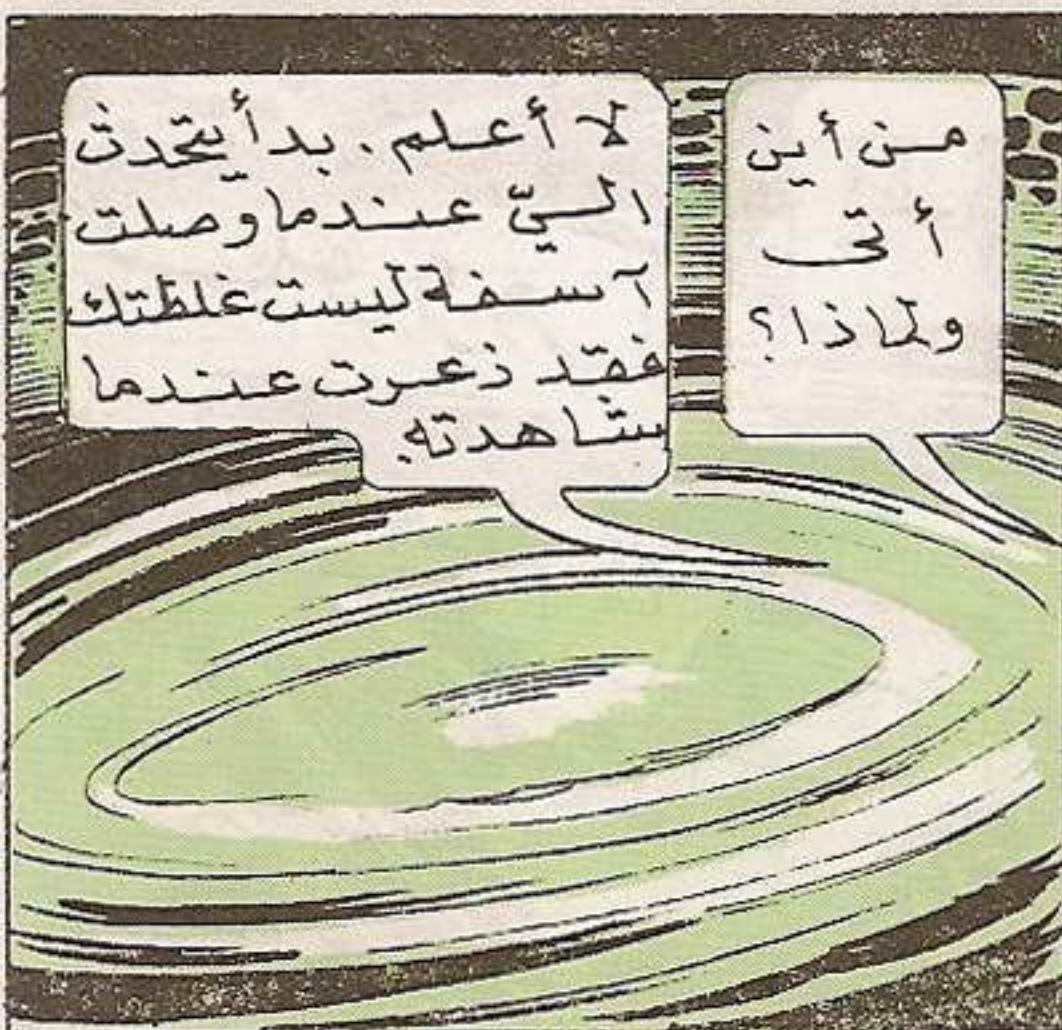 من أين
أتى
ولماذا؟
لا أعلم. بدأ يتحدث
اليّ عندما وصلت
آسفة ليست غلطتك
فقد ذعرت عندما
شاهدته.